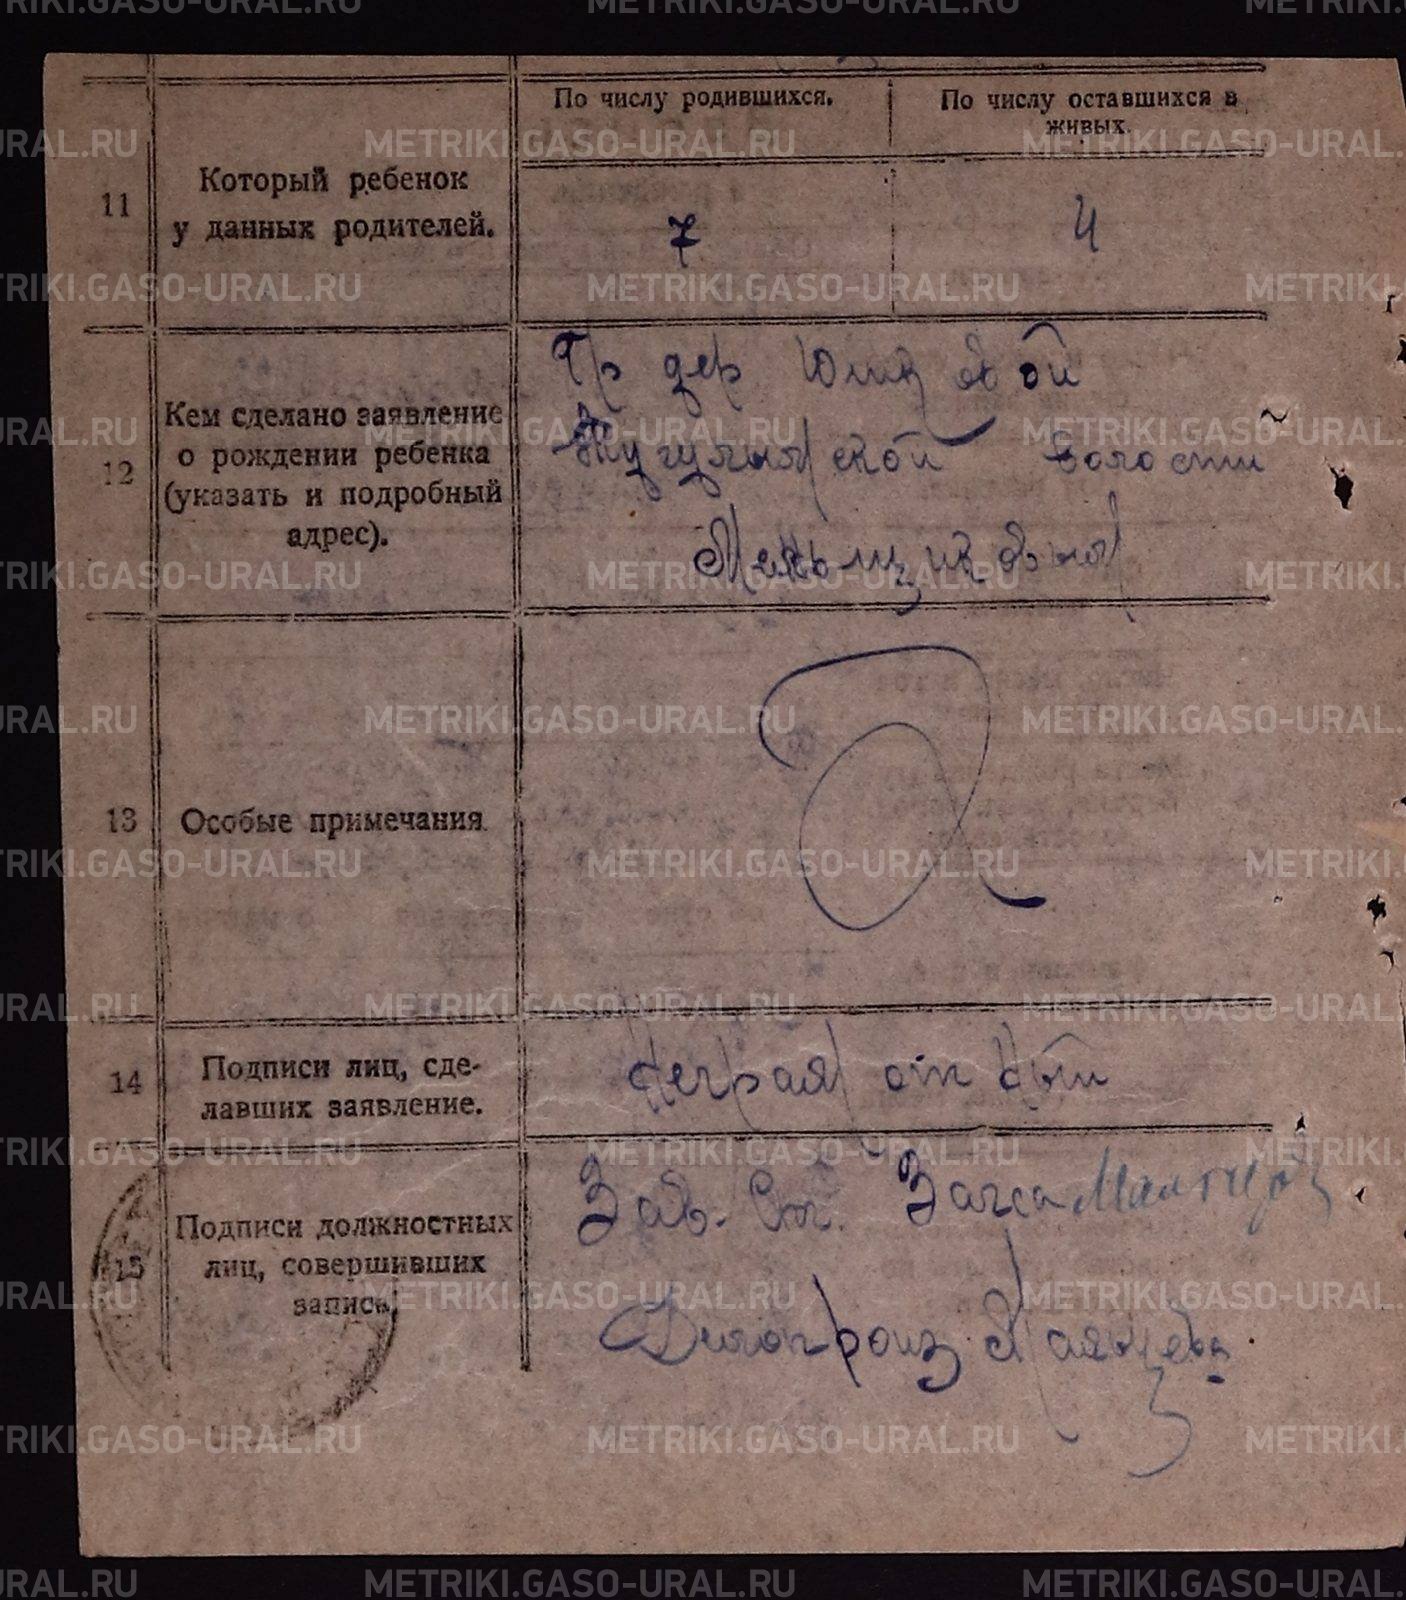 По числу родившихся.
По числу оставшихся в
живых.
11
Который ребенок
у данных родителей.
7
4
12
Кем сделано заявление
о рождении ребенка
(указать и подробный
адрес).
Гр дер Юшковой
волости
Меньшикова
13
Особые примечания.
14
Подписи лиц, сде-
лавших заявление.
15
Подписи должностных
лиц, совершивших
запись.
Зав. Ст. Загса
Делопроиз
METRIKI.GASO-URAL.RU